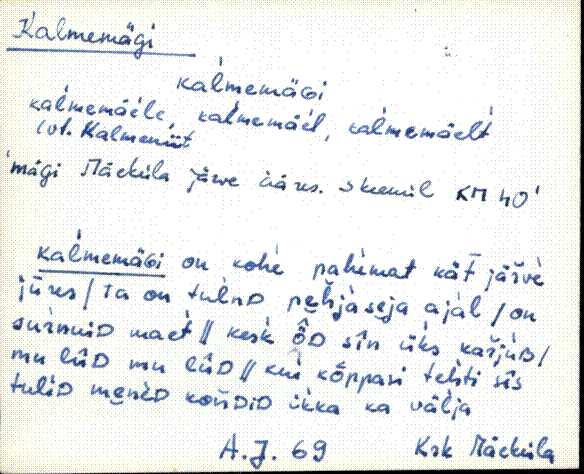 Kalmemägi
kalmemäGi
kalmemäele, kalmemäel, kalmemäelt
(vt. Kalmeniit
'mägi Mäeküla järve ääres. Skeemil KM 40'
kalmemäGi on kohe pahemat kät järve
jüres / ta on tulnD pehjaseja ajal / on
surnuiD maet // kesk ȭD sīn üks karjuB /
mu lūD mu lūD // kui kõppasi tehti sīs
tuliD meneD konDiD ikka ka välja
A. J. 69 Ksk Mäeküla